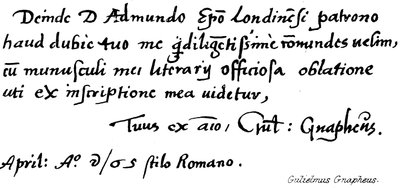 Deinde D Admundo Epõ Londinẽsi patrono
haud dubie tuo me q̃diligẽtissime cõmendes uelim,
cũ munusculi mei literarij officiosa oblatione
uti ex inscriptione mea uidetur,
Tuus ex aĩo, Guil: Gnapheus.
April: Aº stilo Romano.
Gulielmus Gnapheus.